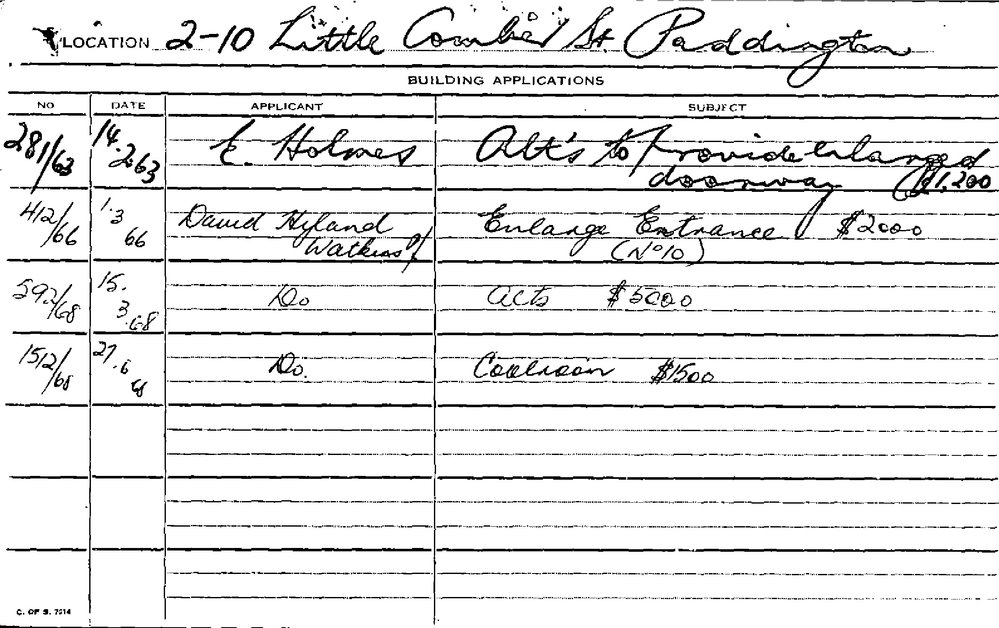 LOCATION 2-10 Little Comber St. Paddington
BUILDING APPLICATIONS
NO DATE APPLICANT SUBJECT
281/63 14.2.63 E. Holmes Alt's to provide enlarged
doorway £1,200
412/66 1.3.66 David Hyland Enlarge Entrance $2000
Watkins (No 10)
592/68 15.3.68 Do Alts $5000
1512/68 27.6.68 Do. Coolroom $1500
C. OF S. 7214